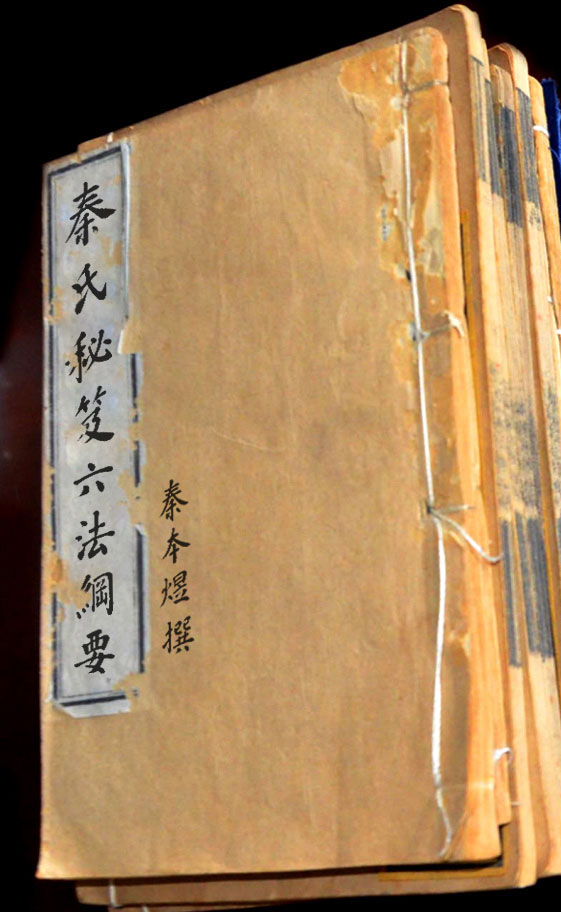 秦氏秘笈六法綱要
秦本煜撰